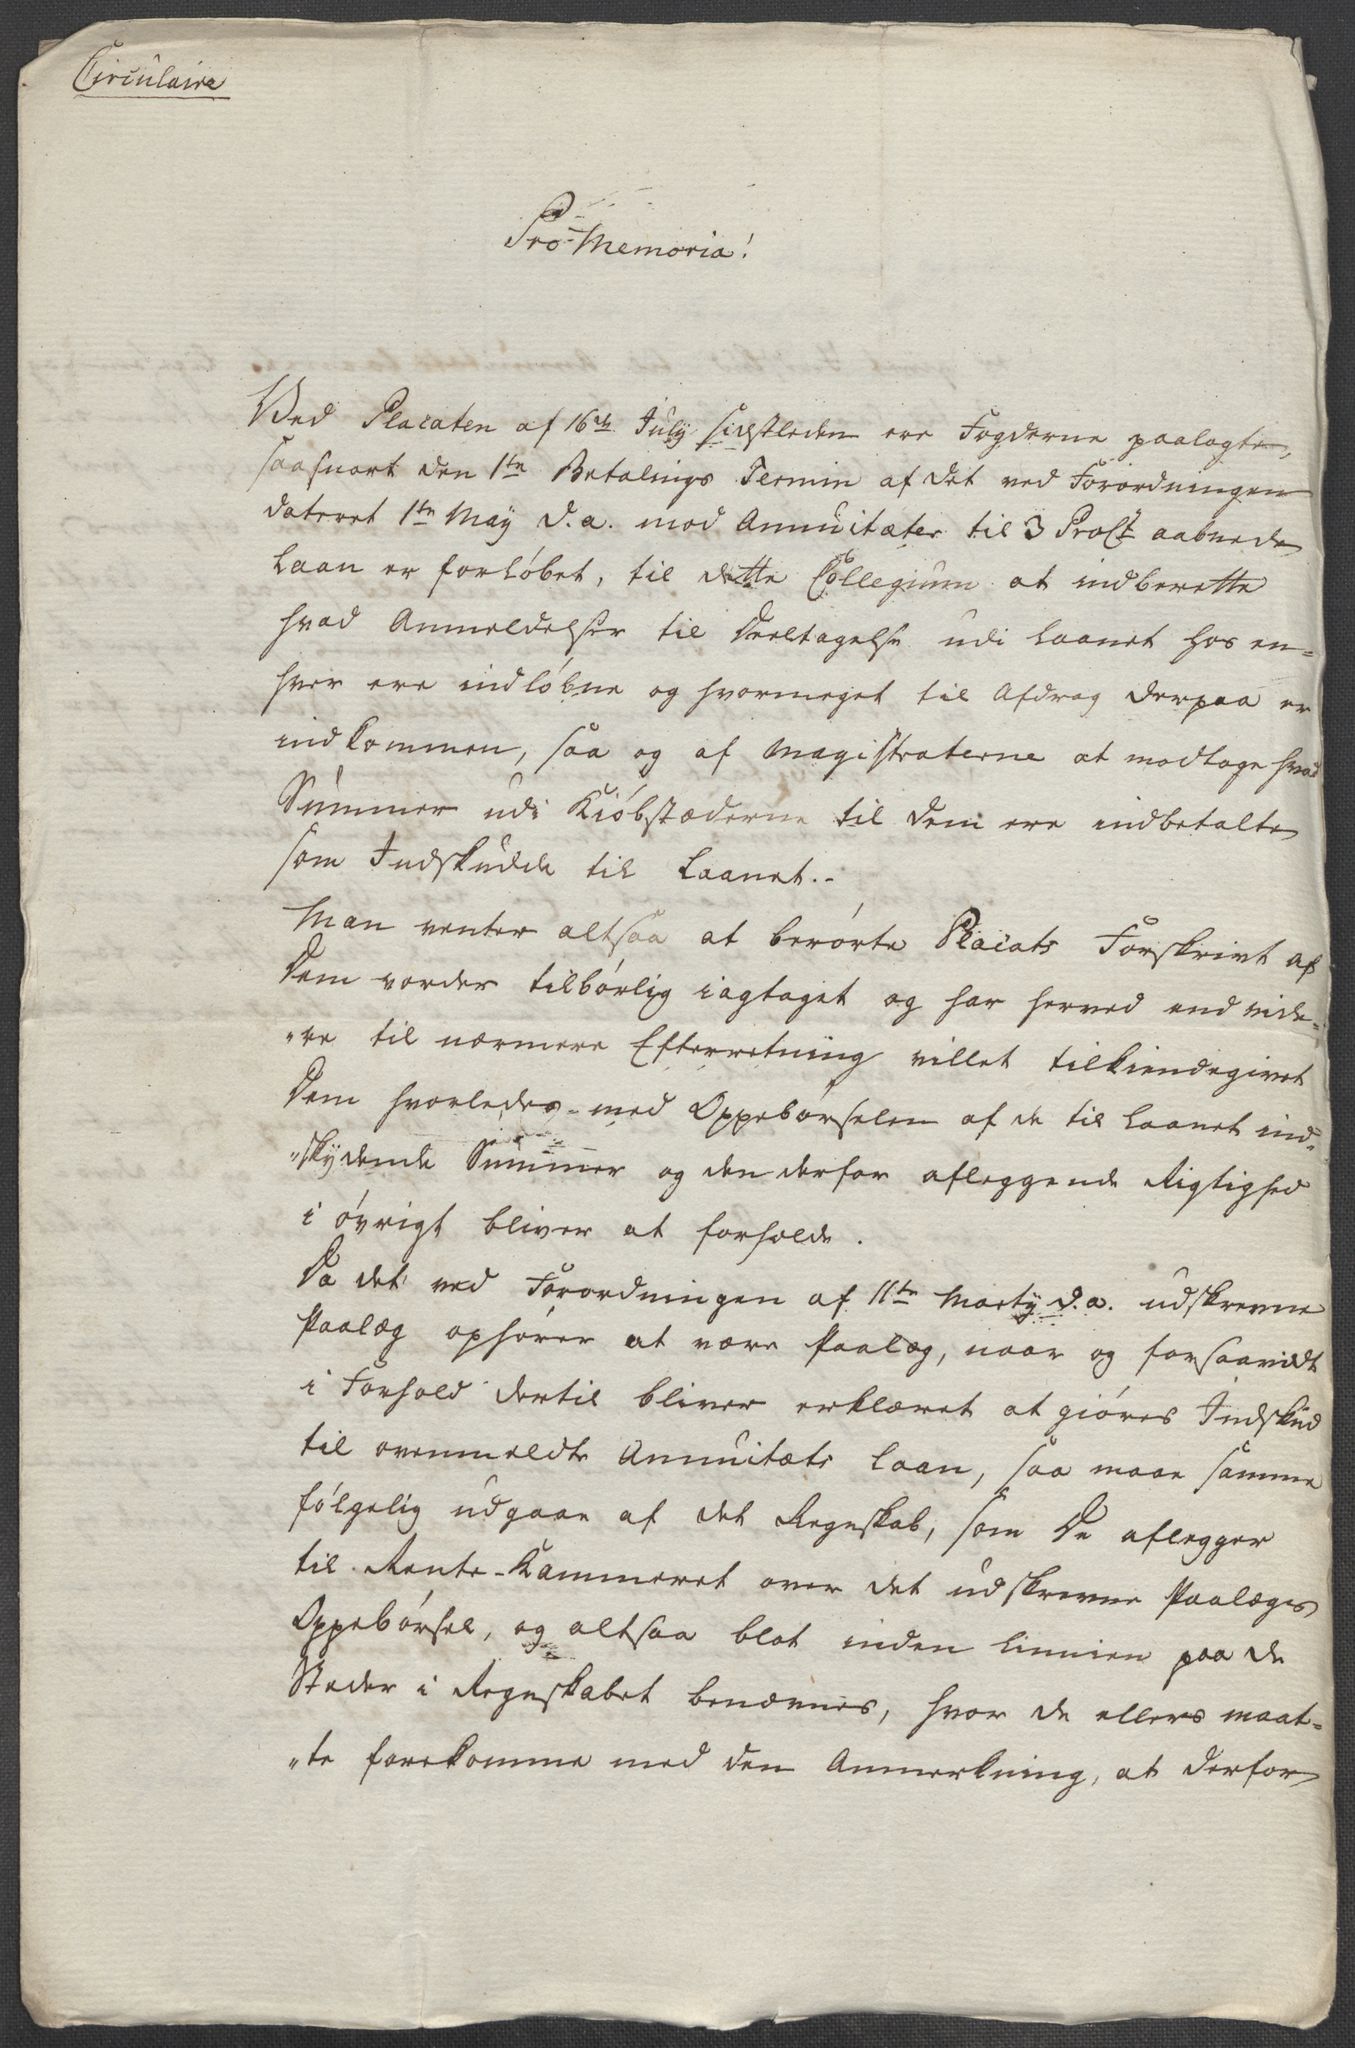 Circulaire
Pro Memoria!
Ved Placaten af 16de July sidstleden ere Fogderne paalagte,
saasnart den 1te Betalings Termin af det ved Forordningen
dateret 1te May d.a. mod Annuitæter til 3 ProCt aabnede
Laan er forløbet, til dette Collegium at indberette
hvad Anmeldelser til Deeltagelse udi Laanet hos en-
hver ere indløbne og hvormeget til Afdrag derpaa er
indkommen, saa og af Magistraterne at modtage hvad
Summer udi Kiøbstæderne til dem ere indbetalte
som Indskudde til Laanet.-
Man venter altsaa at berørte Placats Forskrivt af
Dem vorder tilbørlig iagtaget og har herved end vide-
"re til nærmere Efterretning villet tilkiendegivet
Dem hvorledes med Oppebørselen af de til Laanet ind-
"skydende Summer og den derfor afleggende Rigtighed
i øvrigt bliver at forholde.
Da det ved Forordningen af 11te Marty d.a. udskrevne
Paalæg ophører at være Paalæg, naar og forsaavidt
i Forhold dertil bliver erklæret at giøres Indskud
til ovenmeldte Annuitæts Laan, saa maae samme
følgelig udgaae af det Regnskab, som De aflegger
til Rente-Kammeret over det udskrevne Paalægs
Oppebørsel, og altsaa blot inden Linnien paa de
Steder i Regnskabet benævnes, hvor de ellers maat-
"te forekomme med den Anmerkning, at derfor